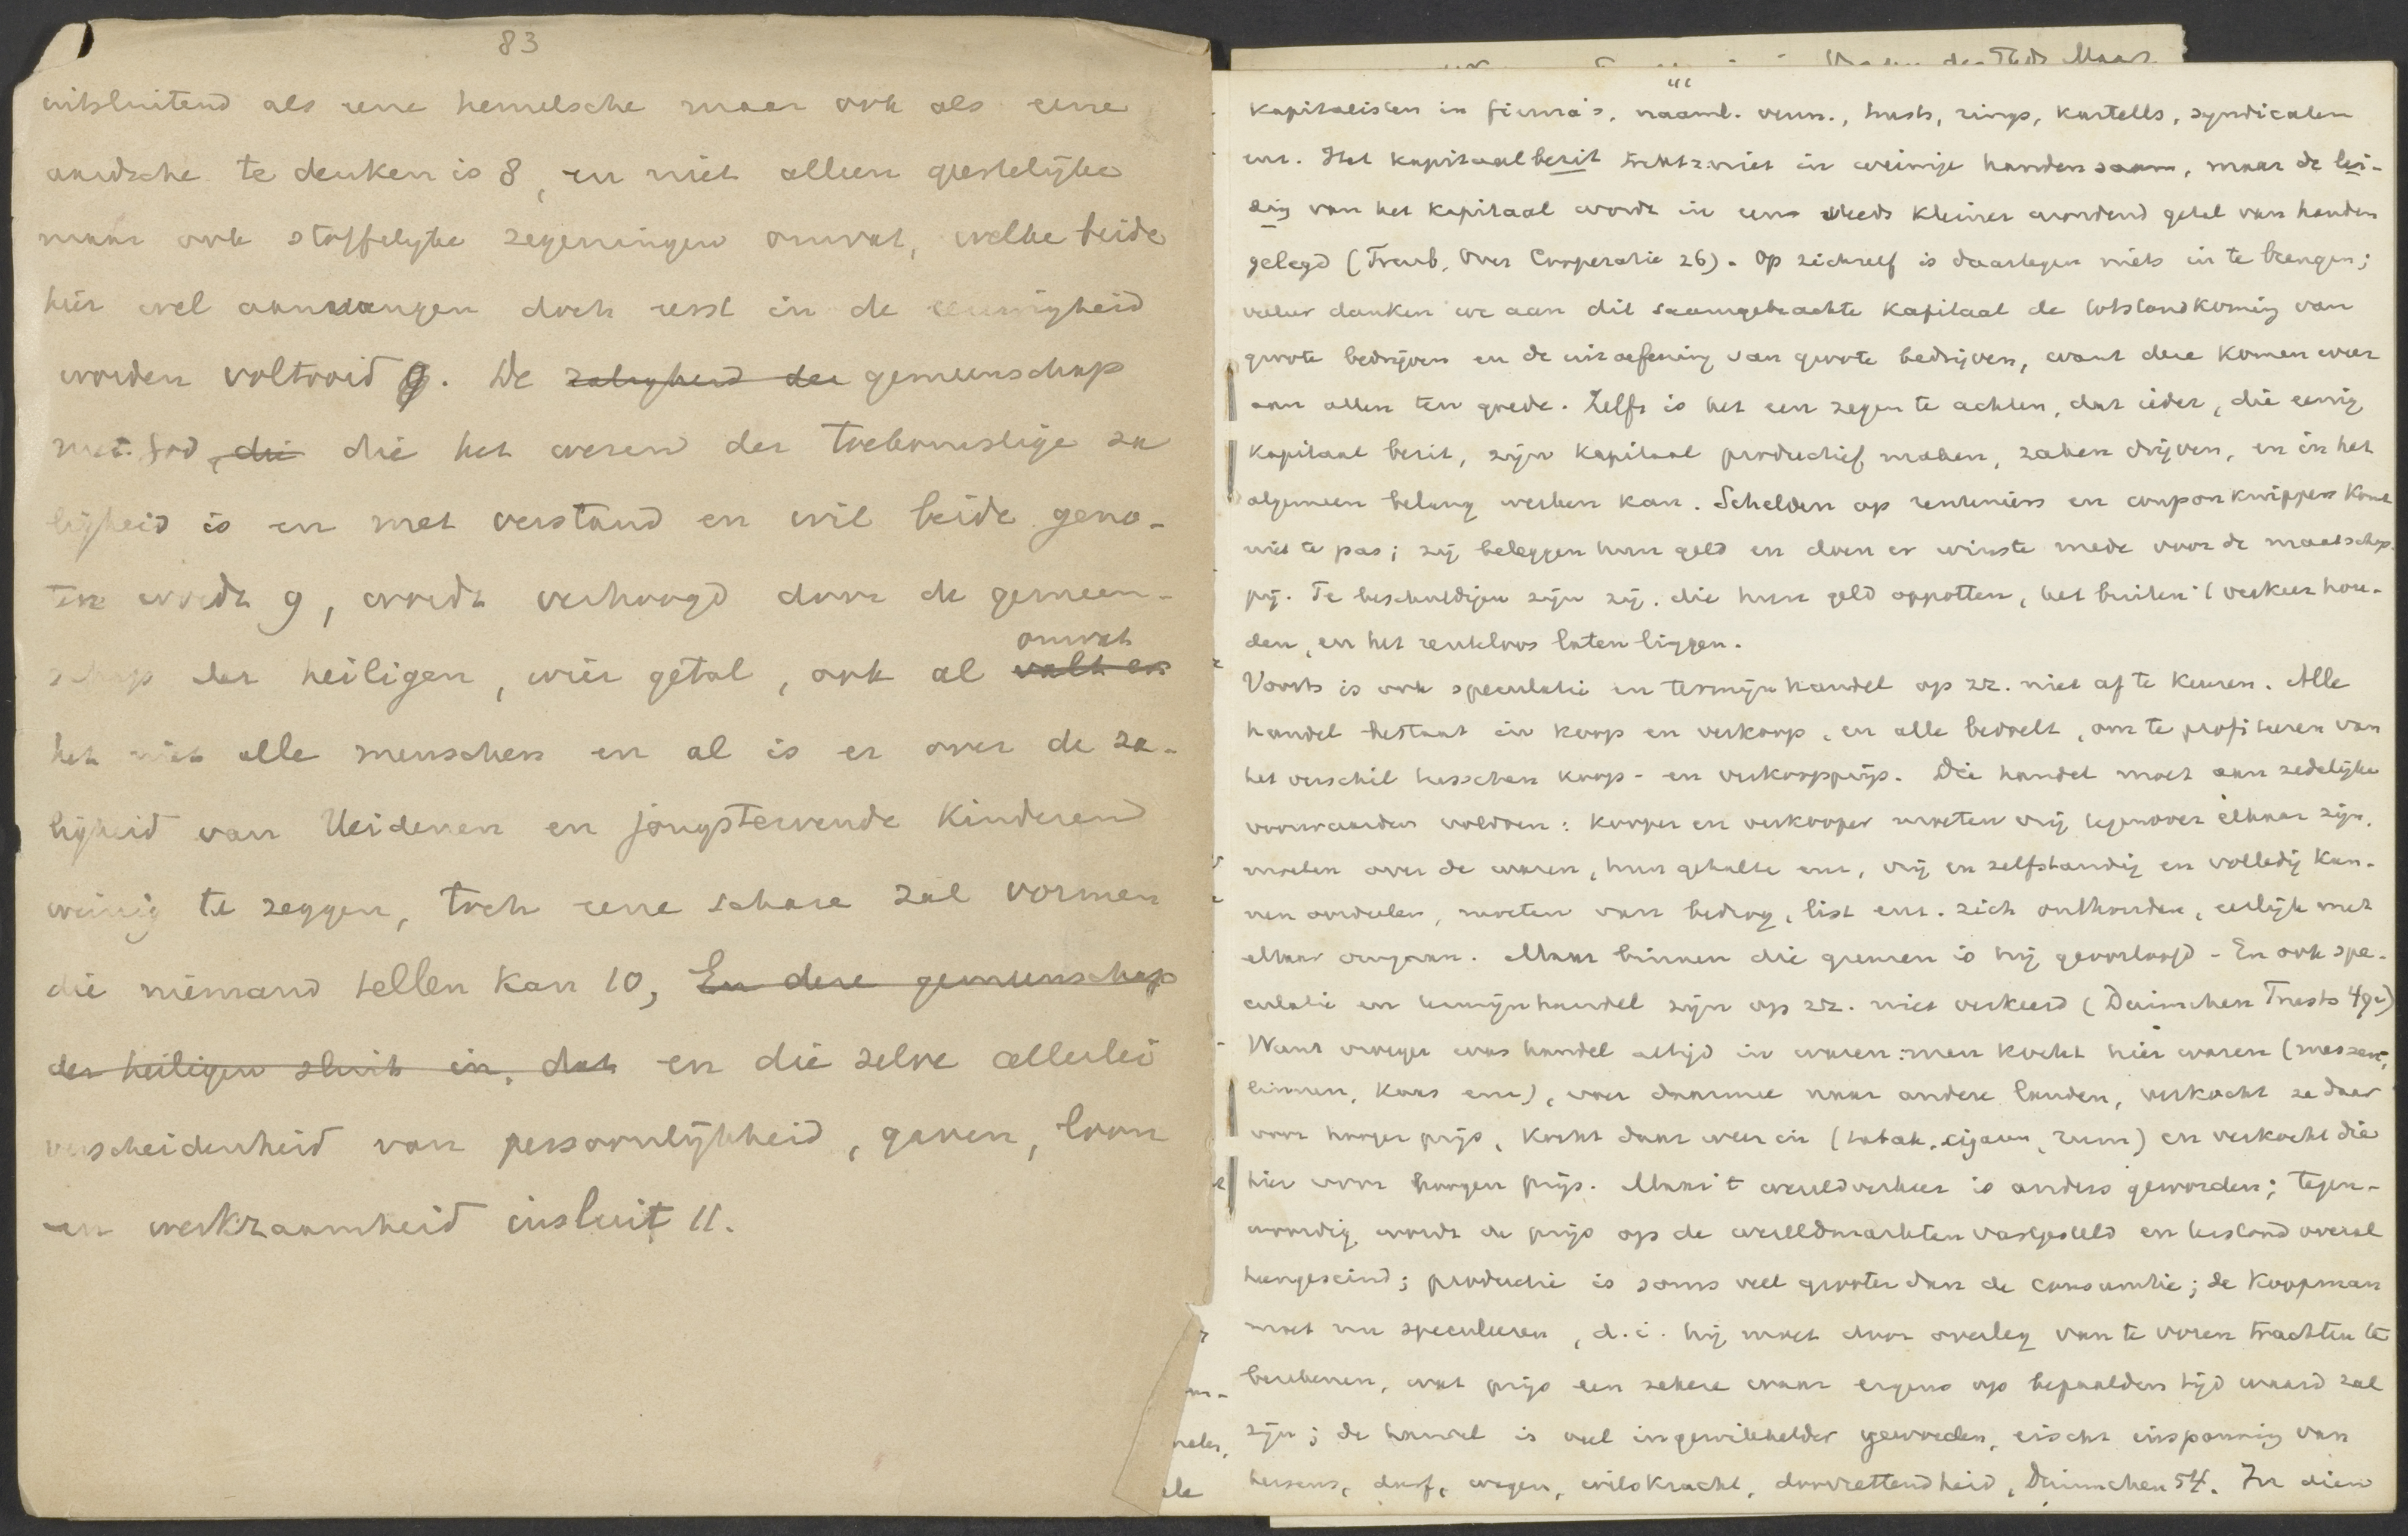 83
uitsluitend als eene hemelsche maar ook als eene
aardsche te denken is 8, en niet alleen geestelijke
maar ook stoffelijke zegeningen omvat, welke beide
hier wel aanvangen doch eerst in de eeuwigheid
worden voltooid 9. De zaligheid der gemeenschap
met God, die die het wezen der toekomstige za
ligheid is en met verstand en wil beide geno-
ten wordt 9, wordt verhoogd door de gemeen-
omvat
schap der heiligen, wier getal, ook al valt er
het niet alle menschen en al is er over de za-
ligheid van Heidenen en jongstervende kinderen
weinig te zeggen, toch eene schare zal vormen
die niemand tellen kan 10, En deze gemeenschap
der heiligen sluit in, dat en die zelve allerlei
verscheidenheid van persoonlijkheid, gaven, loon
en werkzaamheid insluit 11.
Kapitalisten in firma's, naaml. venn., trusts, rings, kartells, syndicaten
enz. Het kapitaalbezit trekt z. niet in weinige handen saam, maar de lei-
ding van het kapitaal wordt in een steeds kleiner wordend getal van handen
gelegd (Treub, Over Cooperatie 26). Op zichzelf is daartegen niets in te brengen;
veeleer danken we aan dit saamgebrachte kapitaal de totstandkoming van
groote bedrijven en de uitoefening van groote bedrijven, want deze komen weer
aan allen ten goede. Zelfs is het een zegen te achten, dat ieder, die eenig
kapitaal bezit, zijn kapitaal productief maken, zaken drijven, en in het
algemeen belang werken kan. Schelden op renteniers en couponknippers komt
niet te pas; zij beleggen hun geld en doen er winste mede voor de maatschap-
pij. Te beschuldigen zijn zij, die hun geld oppotten, het buiten 't verkeer hou-
den, en het renteloos laten liggen.
Voorts is ook speculatie en termijnhandel op zz. niet af te keuren. Alle
handel bestaat in koop en verkoop, en alle bedoelt, om te profiteeren van
het verschil tusschen koop- en verkoopprijs. Die handel moet aan zedelijke
voorwaarden voldoen: kooper en verkooper moeten vrij tegenover elkaar zijn,
moeten over de waren, hun gehalte enz, vrij en zelfstandig en volledig kun-
nen oordeelen, moeten van bedrog, list enz. zich onthouden, eerlijk met
elkaar omgaan. Maar binnen die grenzen is hij geoorloofd - En ook spe-
culatie en termijnhandel zijn op zz. niet verkeerd (Duimchen Trusts 49v)
Want vroeger was handel altijd in waren: men kocht hier waren (messen,
linnen, kaas enz), voer daarmee naar andere landen, verkocht ze daar
voor hooger prijs, kocht daar weer in (tabak, cigaren, rum) en verkocht die
hier voor hoogen prijs. Maar 't wereldverkeer is anders geworden; tegen-
woordig wordt de prijs op de wereldmarkten vastgesteld en terstond overal
heengeseind; productie is soms veel grooter dan de consumtie; de koopman
moet nu speculeeren, d.i. hij moet door overleg van te voren trachten te
berekenen, wat prijs een zekere waar ergens op bepaalden tijd waard zal
zijn; de handel is veel ingewikkelder geworden, eischt inspanning van
hersens, durf, wagen, wilskracht, doorzettendheid, Duimchen 54. In dien